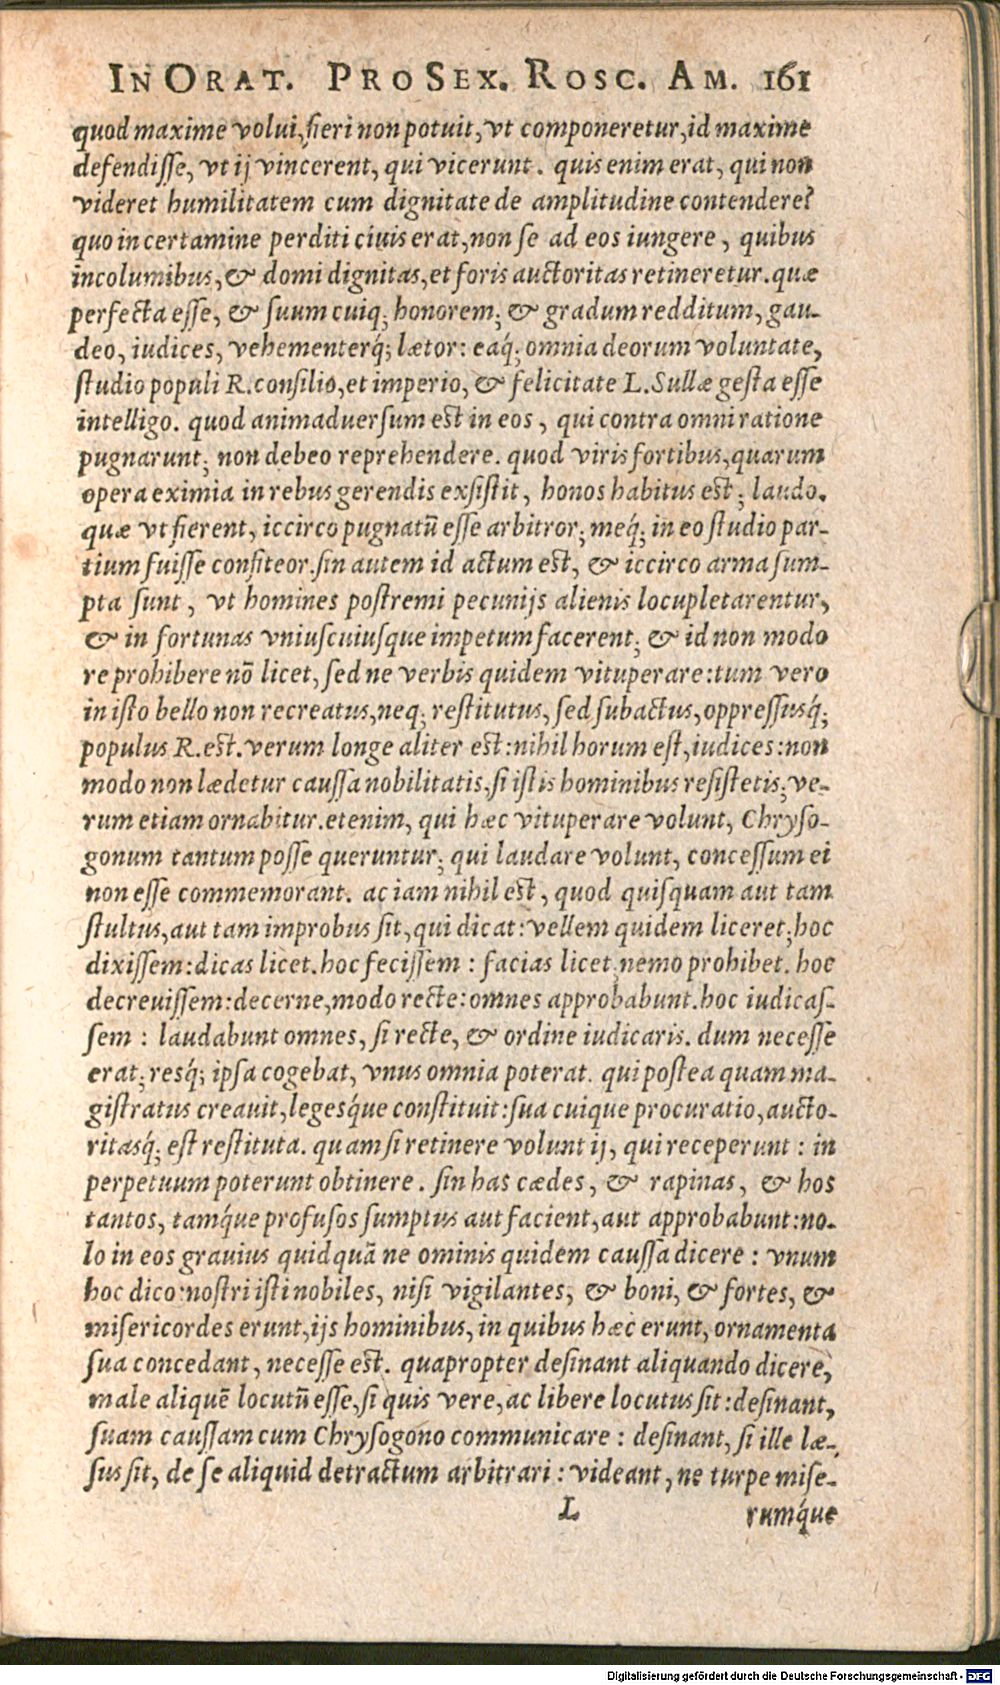 IN ORAT. PRO SEX. ROSC. AM. 161
quod maxime volui, fieri non potuit, vt componeretur, id maxime
defendisse, vt ij vincerent, qui vicerunt. quis enim erat, qui non
videret humilitatem cum dignitate de amplitudine contendere?
quo in certamine perditi ciuis erat, non se ad eos iungere, quibus
incolumibus, & domi dignitas, et foris auctoritas retineretur. quæ
perfecta esse, & suum cuiq; honorem; & gradum redditum, gau-
deo, iudices, vehementerq́; lætor: eaq́; omnia deorum voluntate,
studio populi R. consilio, et imperio, & felicitate L. Sullæ gesta esse
intelligo. quod animaduersum est in eos, qui contra omni ratione
pugnarunt; non debeo reprehendere. quod viris fortibus, quarum
opera eximia in rebus gerendis exsistit, honos habitus est; laudo.
quæ vt fierent, iccirco pugnatū esse arbitror; meq́; in eo studio par-
tium fuisse confiteor. sin autem id actum est, & iccirco arma sum-
pta sunt, vt homines postremi pecunijs alienis locupletarentur,
& in fortunas vniuscuiusque impetum facerent; & id non modo
re prohibere nō licet, sed ne verbis quidem vituperare: tum vero
in isto bello non recreatus, neq; restitutus, sed subactus, oppressusq́;
populus R. est. verum longe aliter est: nihil horum est, iudices: non
modo non lædetur caussa nobilitatis, si istis hominibus resistetis; ve-
rum etiam ornabitur. etenim, qui hæc vituperare volunt, Chryso-
gonum tantum posse queruntur; qui laudare volunt, concessum ei
non esse commemorant. ac iam nihil est, quod quisquam aut tam
stultus, aut tam improbus sit, qui dicat: vellem quidem liceret; hoc
dixissem: dicas licet. hoc fecissem: facias licet; nemo prohibet. hoc
decreuissem: decerne, modo recte: omnes approbabunt. hoc iudicas-
sem: laudabunt omnes, si recte, & ordine iudicaris. dum necesse
erat; resq́; ipsa cogebat, vnus omnia poterat. qui postea quam ma-
gistratus creauit, legesq́ue constituit: sua cuique procuratio, aucto-
ritasq́; est restituta. quam si retinere volunt ij, qui receperunt: in
perpetuum poterunt obtinere. sin has cædes, & rapinas, & hos
tantos, tamq́ue profusos sumptus aut facient, aut approbabunt: no-
lo in eos grauius quidquā ne ominis quidem caussa dicere: vnum
hoc dico: nostri isti nobiles, nisi vigilantes, & boni, & fortes, &
misericordes erunt, ijs hominibus, in quibus hæc erunt, ornamenta
sua concedant, necesse est. quapropter desinant aliquando dicere,
male aliquē locutū esse, si quis vere, ac libere locutus sit: desinant,
suam caussam cum Chrysogono communicare: desinant, si ille læ-
sus sit, de se aliquid detractum arbitrari: videant, ne turpe mise-
L rumq́ue
Digitalisierung gefördert durch die Deutsche Forschungsgemeinschaft - DFG